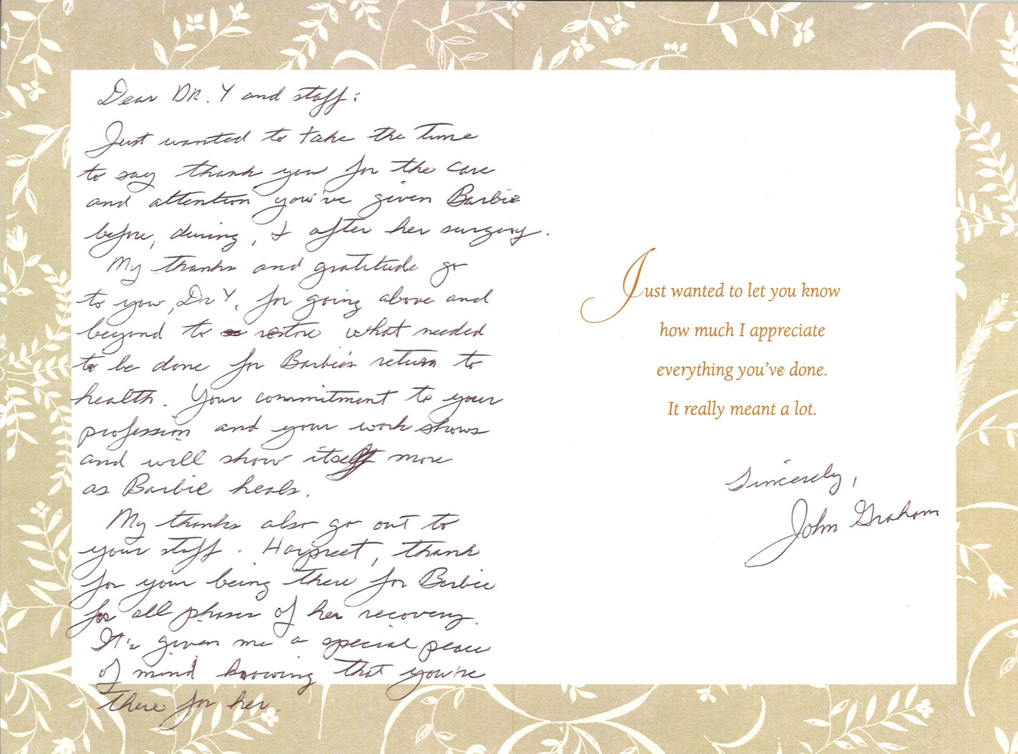 Dear DR. Y and staff:
Just wanted to take the time
to say thank you for the care
and attention you've given Barbie
before, during, & after her surgery.
My thanks and gratitude go
to you, Dr Y, for going above and
beyond to restore what needed
to be done for Barbie's return to
health. Your commitment to your
profession and your work shows
and will show itself more
as Barbie heals.
My thanks also go out to
your staff. Harpreet, thank
for your being there for Barbie
for all phases of her recovery.
It's given me a special peace
of mind knowing that you're
there for her.
Just wanted to let you know
how much I appreciate
everything you've done.
It really meant a lot.
Sincerely,
John Graham